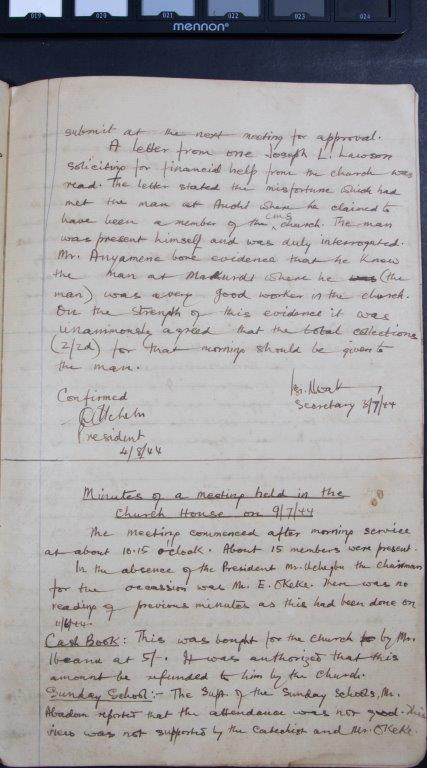 019 020 021 022 023 024
mennon
submit at the next meeting for approval.
A letter from one Joseph L. Lawson
soliciting for financial help from the church was
read. The letter stated the misfortune which had
met the man at where he claimed to
have been a member of the C.M.S church. The man
was present himself and was duly interrogated.
Mr. Anyamene bore evidence that he knew
the man at Makurdi where he was (the
man) was a very good worker in the church.
On the strength of this evidence it was
unanimously agreed that the total collections
(2/2d) for that morning should be given to
the man.
Confirmed
Secretary 3/7/44
President
4/8/44
Minutes of a meeting held in the
Church House on 9/7/44
The meeting commenced after morning service
at about 10.15 o'clock. About 15 members were present.
In the absence of the President Mr. Uchegbu the chairman
for the occassion was Mr. E. Okeke. There was no
reading of previous minutes as this had been done on
Cash Book: This was bought for the Church by Mr.
at 5/-. It was authorised that this
amount be refunded to him by the Church.
Sunday School:- The Supt of the Sunday Schools, Mr.
reported that the attendance was not good. This
view was not supported by the Catechist and Mr. Okeke.